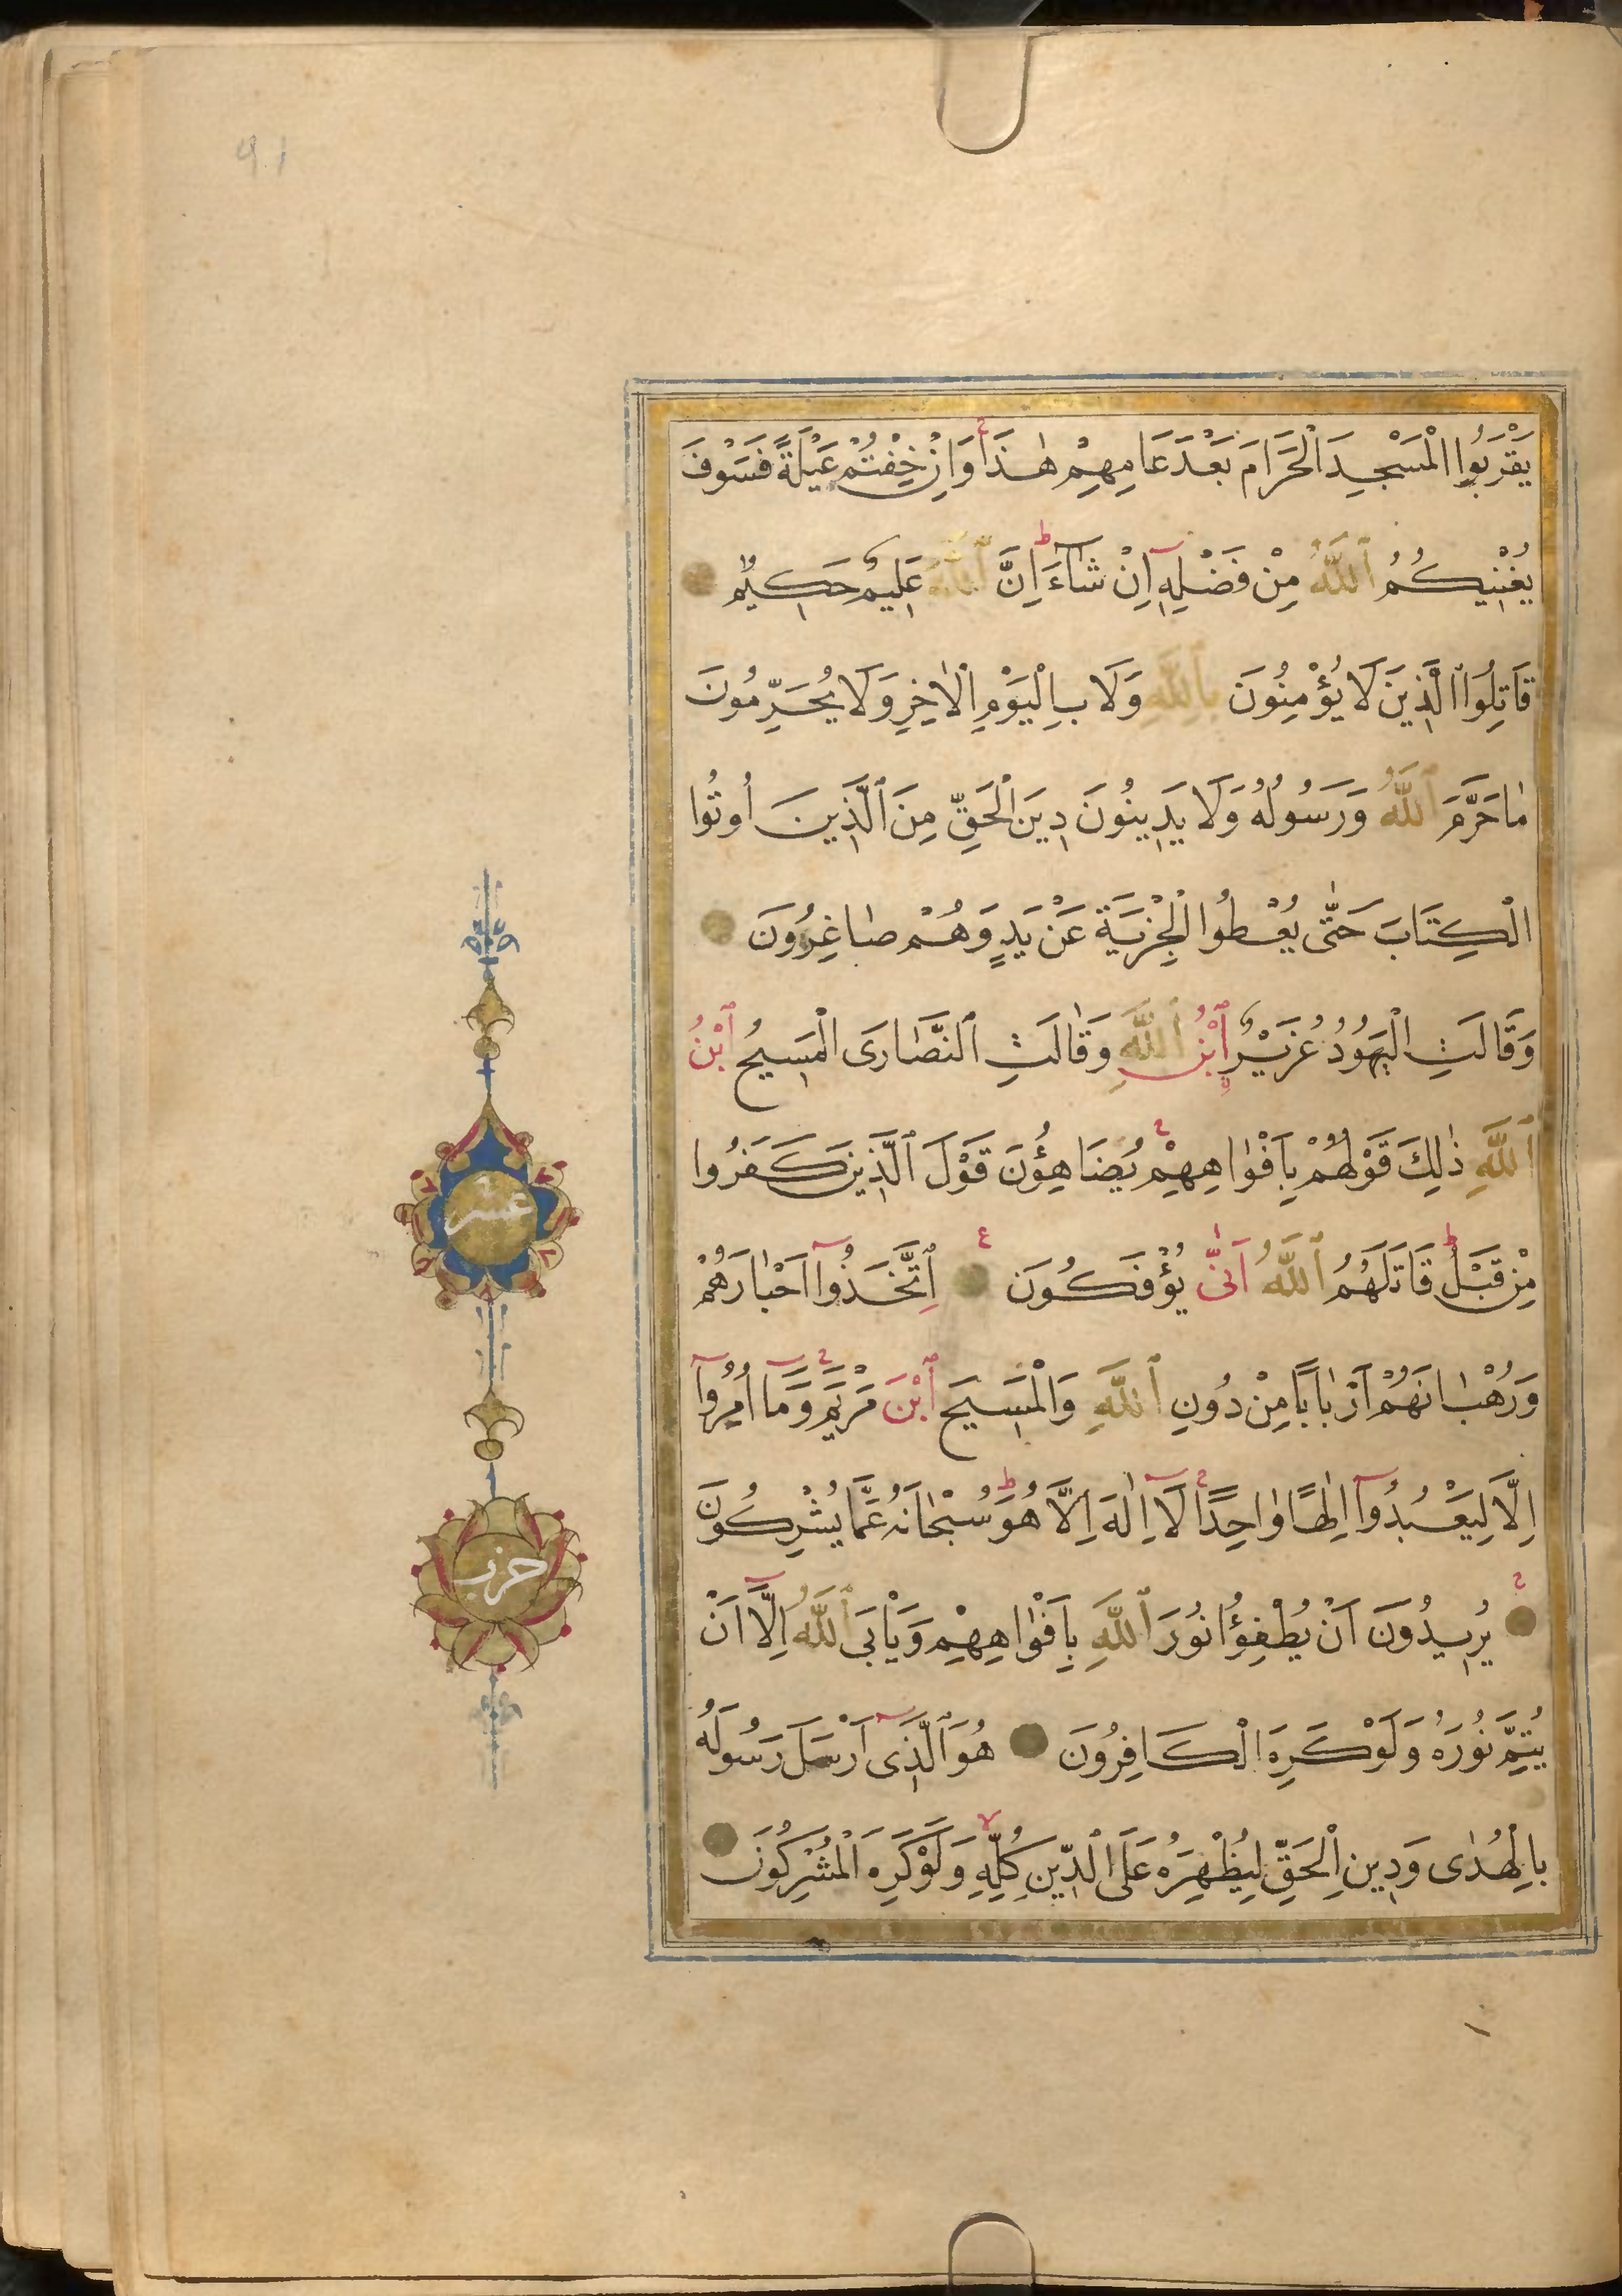 يَقْرَبُوا الْمَسْجِدَ الْحَرَامَ بَعْدَ عَامِهِمْ هٰذَا وَاِنْ خِفْتُمْ عَيْلَةً فَسَوْفَ
يُغْنِيكُمُ ٱللّٰهُ مِنْ فَضْلِهِ اِنْ شَآءَ اِنَّ ٱللّٰهَ عَلِيمٌ حَكِيمٌ
قَاتِلُوا الَّذِينَ لَا يُؤْمِنُونَ بِاللّٰهِ وَلَا بِالْيَوْمِ الْاٰخِرِ وَلَا يُحَرِّمُونَ
مٰا حَرَّمَ ٱللّٰهُ وَرَسُولُهُ وَلَا يَدِينُونَ دِينَ الْحَقِّ مِنَ ٱلَّذِينَ أُوتُوا
الْكِتَابَ حَتّٰى يُعْطُوا الْجِزْيَةَ عَنْ يَدٍ وَهُمْ صٰاغِرُونَ
وَقَالَتِ الْيَهُودُ عُزَيْرٌ ٱبْنُ ٱللّٰهِ وَقٰالَتِ ٱلنَّصٰارَى الْمَسِيحُ ٱبْنُ
ٱللّٰهِ ذٰلِكَ قَوْلُهُمْ بِاَفْوٰاهِهِمْ يُضَاهِؤُنَ قَوْلَ ٱلَّذِينَ كَفَرُوا
مِنْ قَبْلُ قَاتَلَهُمُ ٱللّٰهُ اَنّٰى يُؤْفَكُونَ اِتَّخَذُوٓا اَحْبٰارَهُمْ
وَرُهْبٰانَهُمْ اَرْبٰابًا مِنْ دُونِ ٱللّٰهِ وَالْمَسِيحَ ٱبْنَ مَرْيَمَ وَمَآ اُمِرُوٓا
اِلَّا لِيَعْبُدُوٓا اِلٰهًا وٰاحِدًا لَآ اِلٰهَ اِلَّا هُوَ سُبْحٰانَهُ عَمَّا يُشْرِكُونَ
يُرِيدُونَ اَنْ يُطْفِؤُا نُورَ ٱللّٰهِ بِاَفْوٰاهِهِمْ وَيَأْبَى ٱللّٰهُ اِلَّآ اَنْ
يُتِمَّ نُورَهُ وَلَوْ كَرِهَ الْكَافِرُونَ هُوَ ٱلَّذِىٓ اَرْسَلَ رَسُولَهُ
بِالْهُدٰى وَدِينِ الْحَقِّ لِيُظْهِرَهُ عَلَى الدِّينِ كُلِّهِ وَلَوْ كَرِهَ الْمُشْرِكُونَ
عشر
حزب